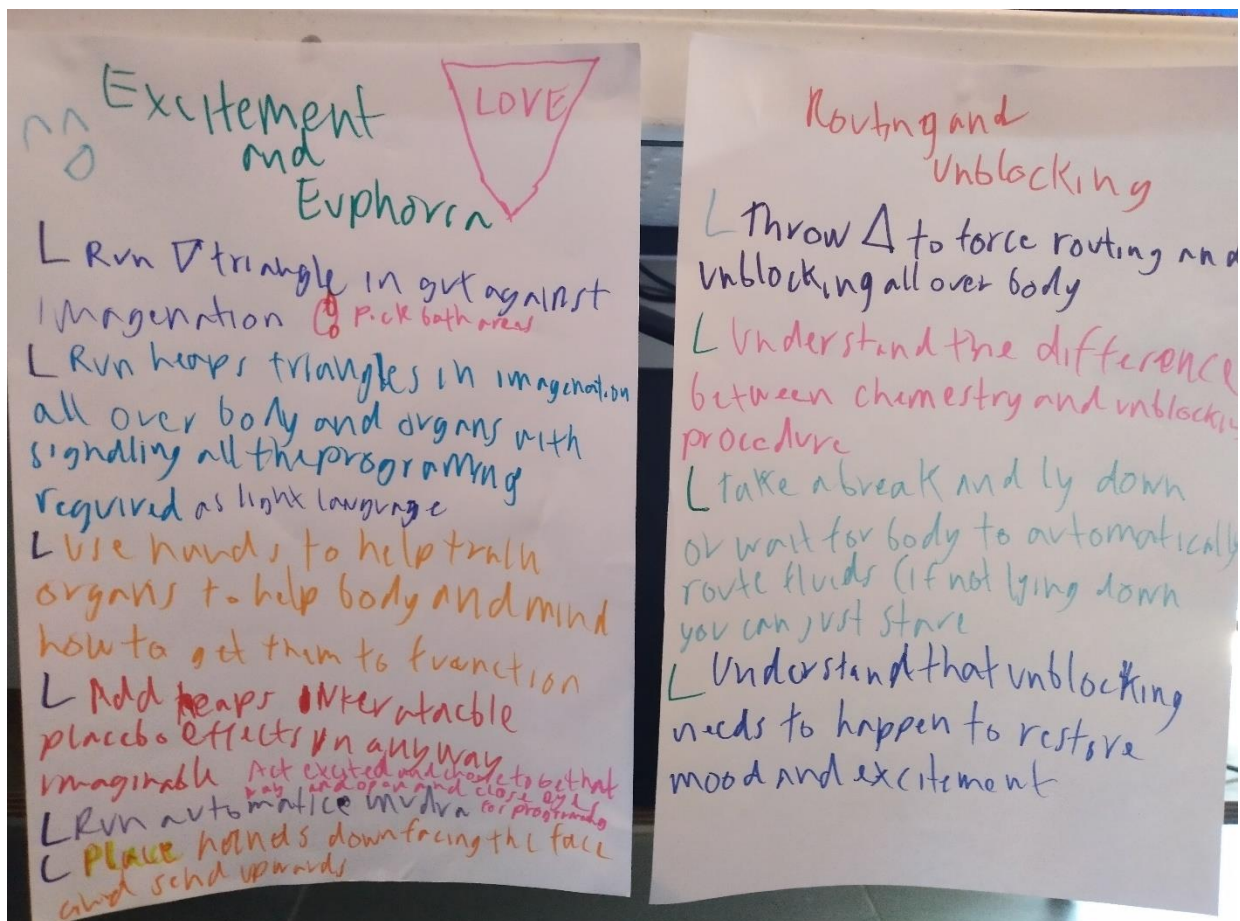 Excitement
and
Euphoria
LOVE
L Run ▽ triangle in gut against
imagenation pick both areas
L Run heaps triangles in imagenation
all over body and organs with
signalling all the programing
required as light language
L use hands to help train
organs to help body and mind
how to get them to function
L Add heaps
placebo effects in anyway
imaginable Act excited and to be that
way and open and close eyes
L Run automatice mudra for programing
L Place hands down facing the face
and send upwards
Routing and
Unblocking
L Throw △ to force routing and
unblocking all over body
L Understand the difference
between chemestry and unblocking
procedure
L take a break and ly down
or wait for body to automatically
route fluids (if not lying down
you can just stare
L Understand that unblocking
needs to happen to restore
mood and excitement